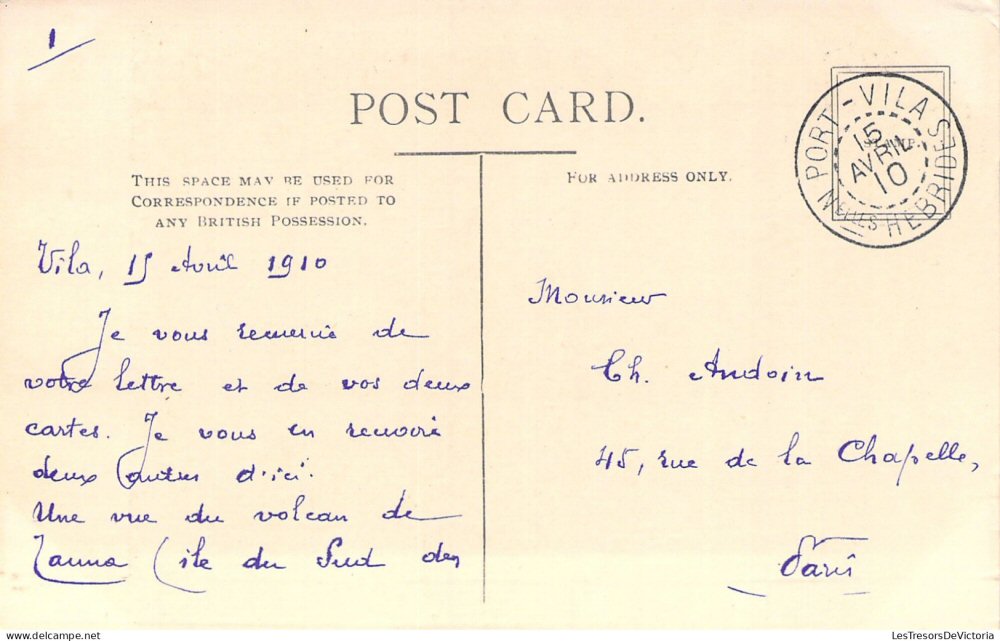 1
POST CARD.
THIS SPACE MAY BE USED FOR
CORRESPONDENCE IF POSTED TO
ANY BRITISH POSSESSION.
FOR ADDRESS ONLY.
PORT-VILA
15
AVRIL
10
Nelles HEBRIDES
Vila, 15 Avril 1910
Je vous remercie de
votre lettre et de vos deux
cartes. Je vous en renvoie
deux autres d'ici.
Une vue du volcan de
Tanna (île du Sud des
Monsieur
Ch. Andoin
45, rue de la Chapelle,
Paris
LesTresorsDeVictoria
LesTresorsDeVictoria